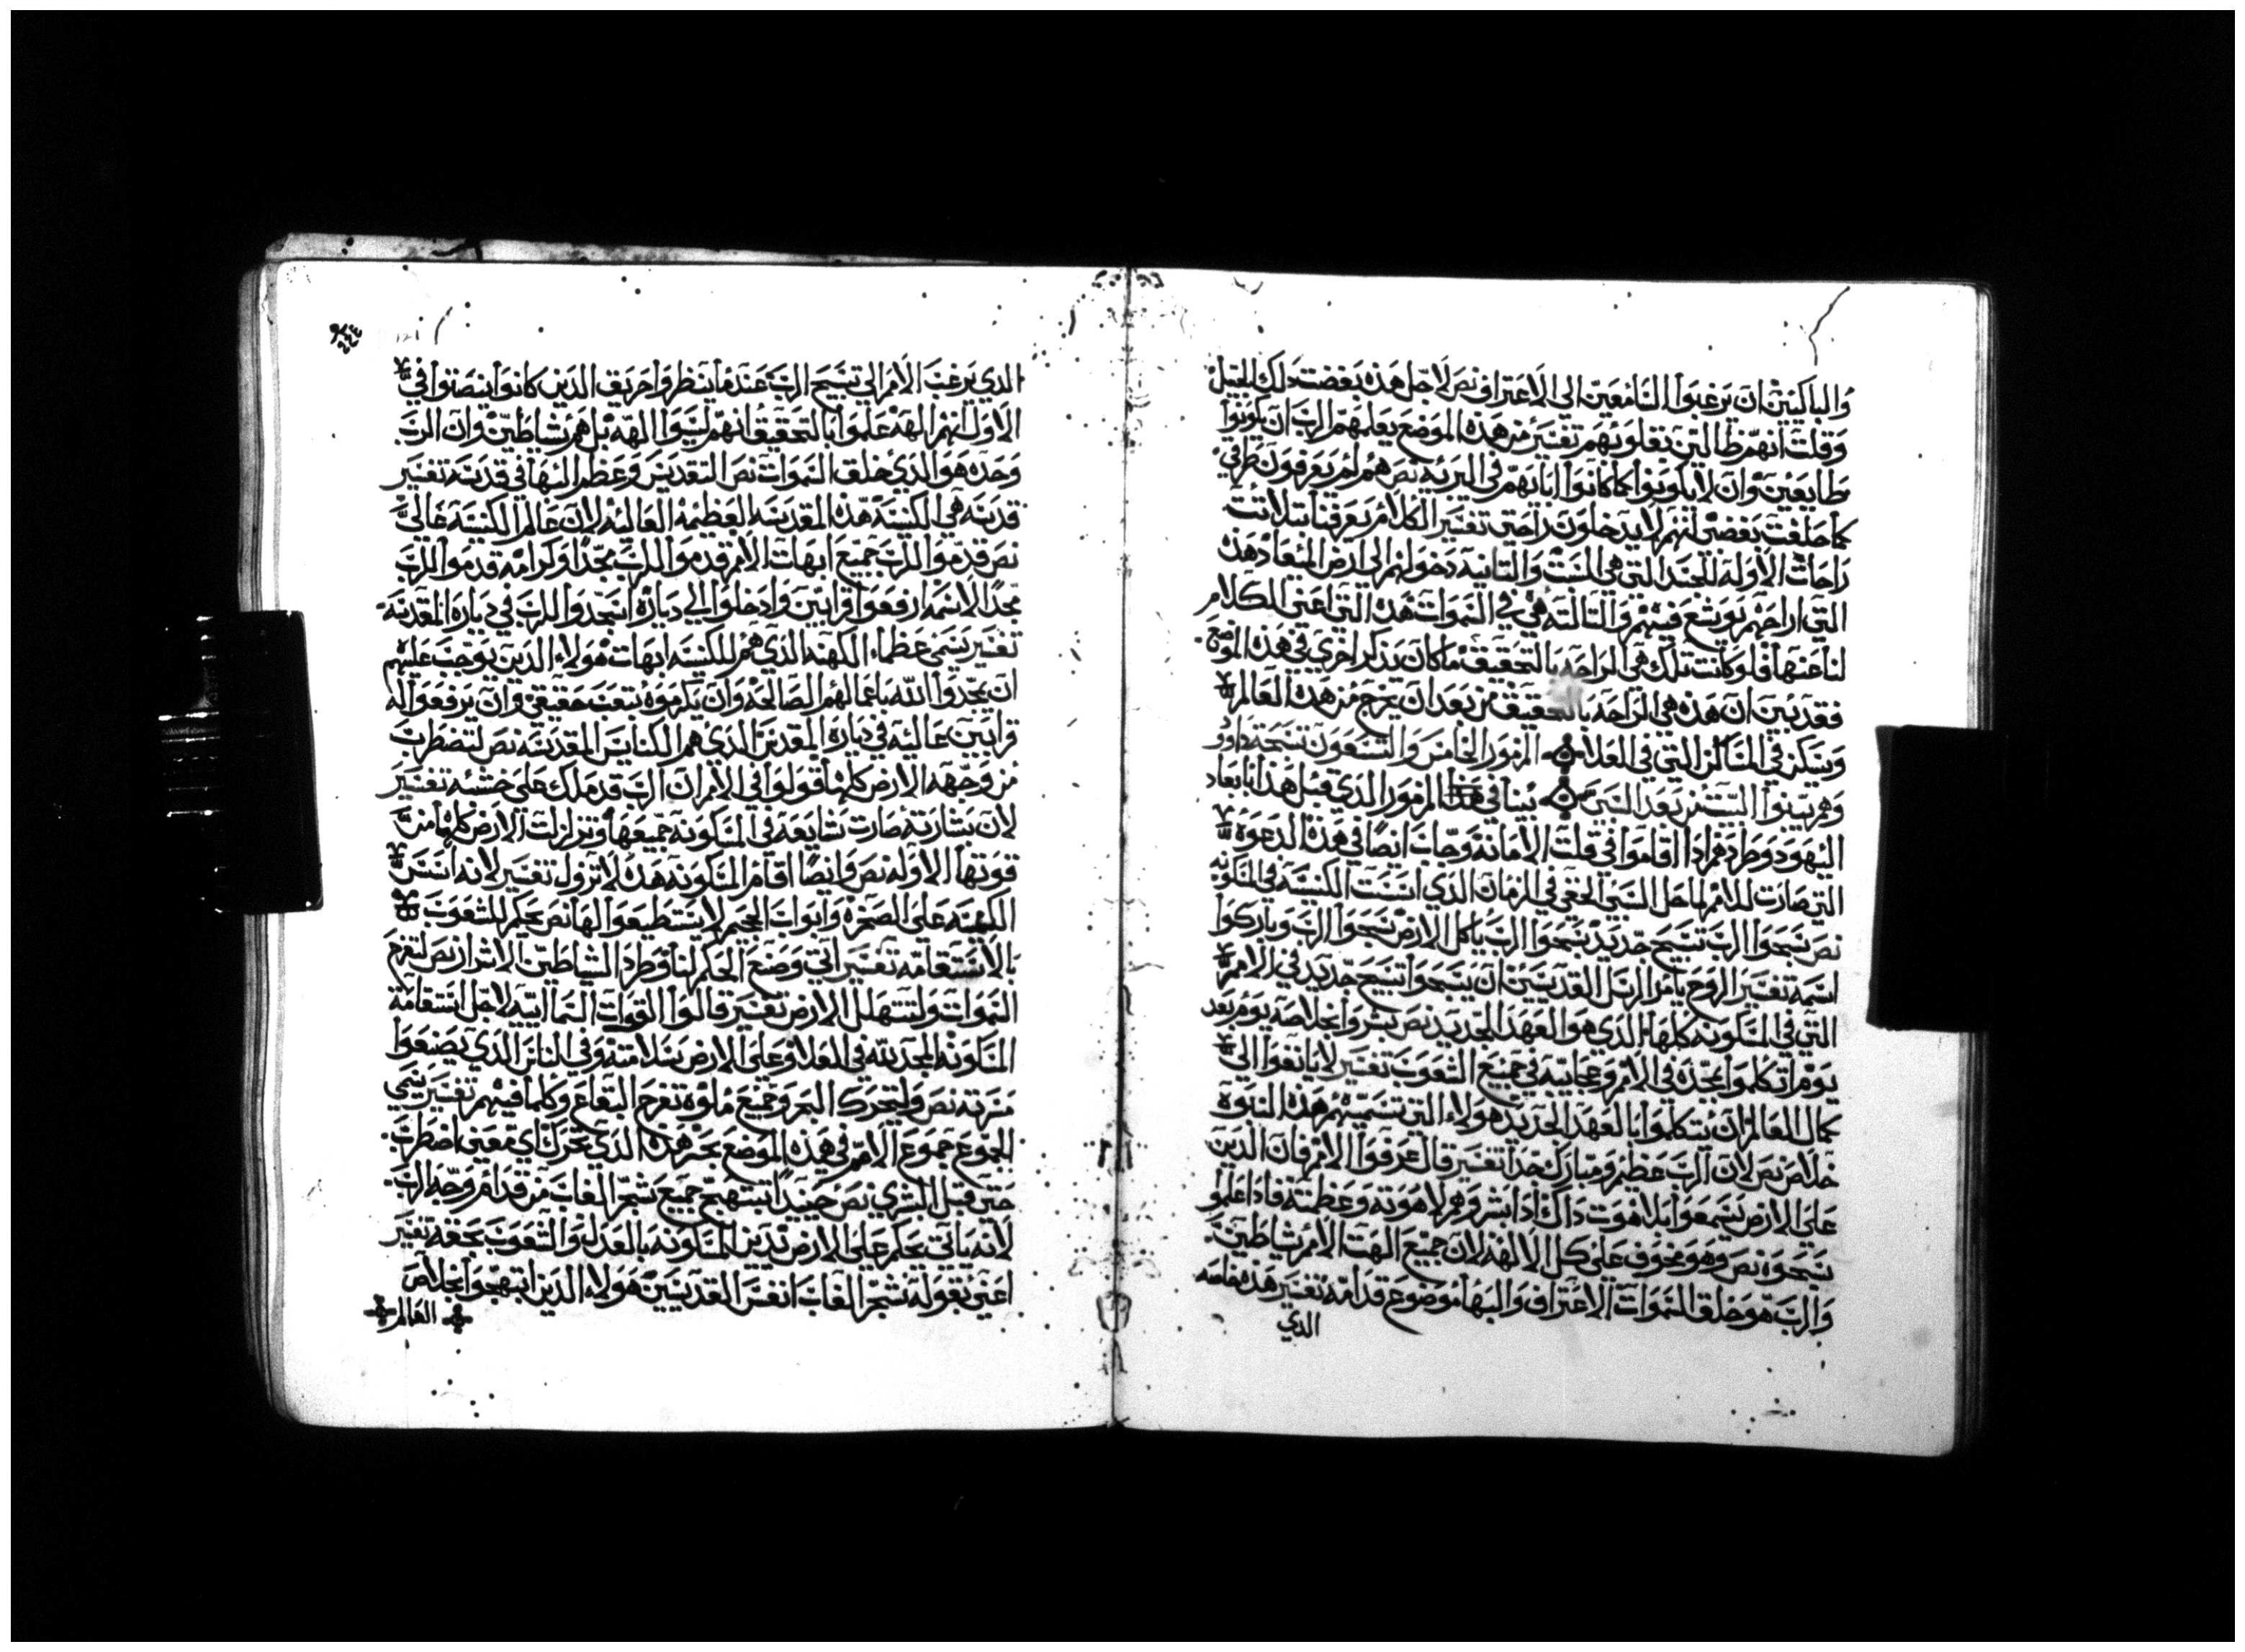 والباكيين ان يرغبوا السامعين الي الاعتراف نص لاجل هذه بغضت دلك الجيل
وقلت انهم ظالين بقلوبهم تفسير من هذه الموضع يعلمهم الرب ان يكونوا
طايعين وان لا يكونوا كما كانوا اباتهم في البريه نص هم لم يعرفون طرقي
كما حلفت بغضبي انهم لا يدخلون راحتي تفسير الكلام يعرفنا بتلاتت
راحات الاوله للجند التي هي السبت والتانيه دخولهم الي ارض الميعاد هذه
التي اراحهم يوشع فيهم والتالته هي في السموات هذه التي اعني الكلام
لنا عنها فلو كانت تلك هي الراحه بالتحقيق ما كان يذكر اخري في هذه الموضع
فقد بين ان هذه هي الراحه بالتحقيق من بعد ان يخرج من هذه العالم
ويسكن في المساكن التي في العلا المزمور الخامس والتسعون تسبحه داوود
وهم يبنوا البيت من بعد السبي يبنا في هذا المزمور الدي قبل هذا ابعاد
اليهود وطردهم ادا اقاموا في قلت الامانة وجاب ايضا في هذه الدعوة
التي صارت للامم لماحل السبي الحقي في الزمان الدي اسست الكنيسه في المسكونه
نص سبحوا الرب تسبيح جديد سبحوا الرب يا كل الارض سبحوا الرب وباركوا
اسمه تفسير الروح يامر الرسل القديسين ان يسبحوا تسبيح جديد في الامم
التي في المسكونه كلها الدي هو العهد الجديد نص بشروا بخلاصه يوم بعد
يوم اتكلموا بمجده في الامم وعجايبه في جميع الشعوب تفسير لا ياتعوا الي
كمال العالم ان يتكلموا بالعهد الجديد هولاء التي تسميهم هذه النبوة
خلاص نص لان الرب عظيم ومبارك جدا تفسير قال عرفوا الامم فان الدين
علي الارض يسمعوا بلاهوت داك ادا بشروهم لاهوته وعظمته فادا علموا
يسبحوه نص وهو مخوف علي كل الالهة لان جميع الهت الامم شياطين
والرب هو خلق السموات الاعتراف والبها موضوع قدامه تفسير هذه خاصه
الدي
الدي يرغب الامم الي تسبيح الرب عندما ينظروا حريق الدين كانوا ينصتوا في
الاول انهم الهه علموا بالتحقيق انهم ليسوا الهه بل هم شياطين وان الرب
وحده هو الدي خلق السموات نص التقديس وعظم البها في قدسه تفسير
قدسه هي الكنيسه هذه المقدسه العظيمه العاليه لان عالم الكنيسه عالي
نص قدموا للرب جميع ابهات الامم قدموا للرب مجدا وكرامه قدموا للرب
مجدا لاسمه ارفعوا قرابين وادخلوا الي دياره اسجدوا للرب في دياره المقدسه
تفسير يسمي عظماء الكهنه الدي هم للكنيسه ابهات هولاء الدين يوجب عليهم
ان يمجدوا الله باعمالهم الصالحه وان يكرموه بتعب حقيقي وان يرفعوا له
قرابين عاليه في دياره المقدس الدي هم الكنايس المقدسه نص لتضطرب
من وجهه الارض كلها قولوا في الامم ان الرب قد ملك علي خشبه تفسير
لان بشارته صارت شايعه في المسكونه جميعها وتزلزلت الارض كلها من
قوتها الاوله نص وايضا اقام المسكونه هذه لا تزول تفسير لانه اسس
الكنيسه علي الصخره وابواب الجحيم لا يستطيعوا لها نص يحكم للشعوب
بالاستقامه تفسير اتي وضع الحكم لنا وطرد الشياطين الاشرار نص لتفرح
السموات ولتتهلل الارض تفسير قالوا القوات السمائيه لاجل استقامة
المسكونه المجد لله في العلا وعلي الارض سلامته وفي الناس الدي يصنعوا
مسرته نص ولتحرك البحر وجميع ملوه تفرح البقاع وكلما فيهم تفسير يسمي
الجموع جموع الامم في هذه الموضع بحر هذه الدي تحرك اي معني اضطرب
حتي قبل البشري نص حينيدا تبتهج جميع شجر الغاب من قدام وجه الرب
لانه ياتي يحكم علي الارض يدين المسكونه بالعدل والشعوب بحقه تفسير
اعني بقوله شجر الغاب انفس القديسين هولاء الدين ابتهجوا بخلاص
العالم